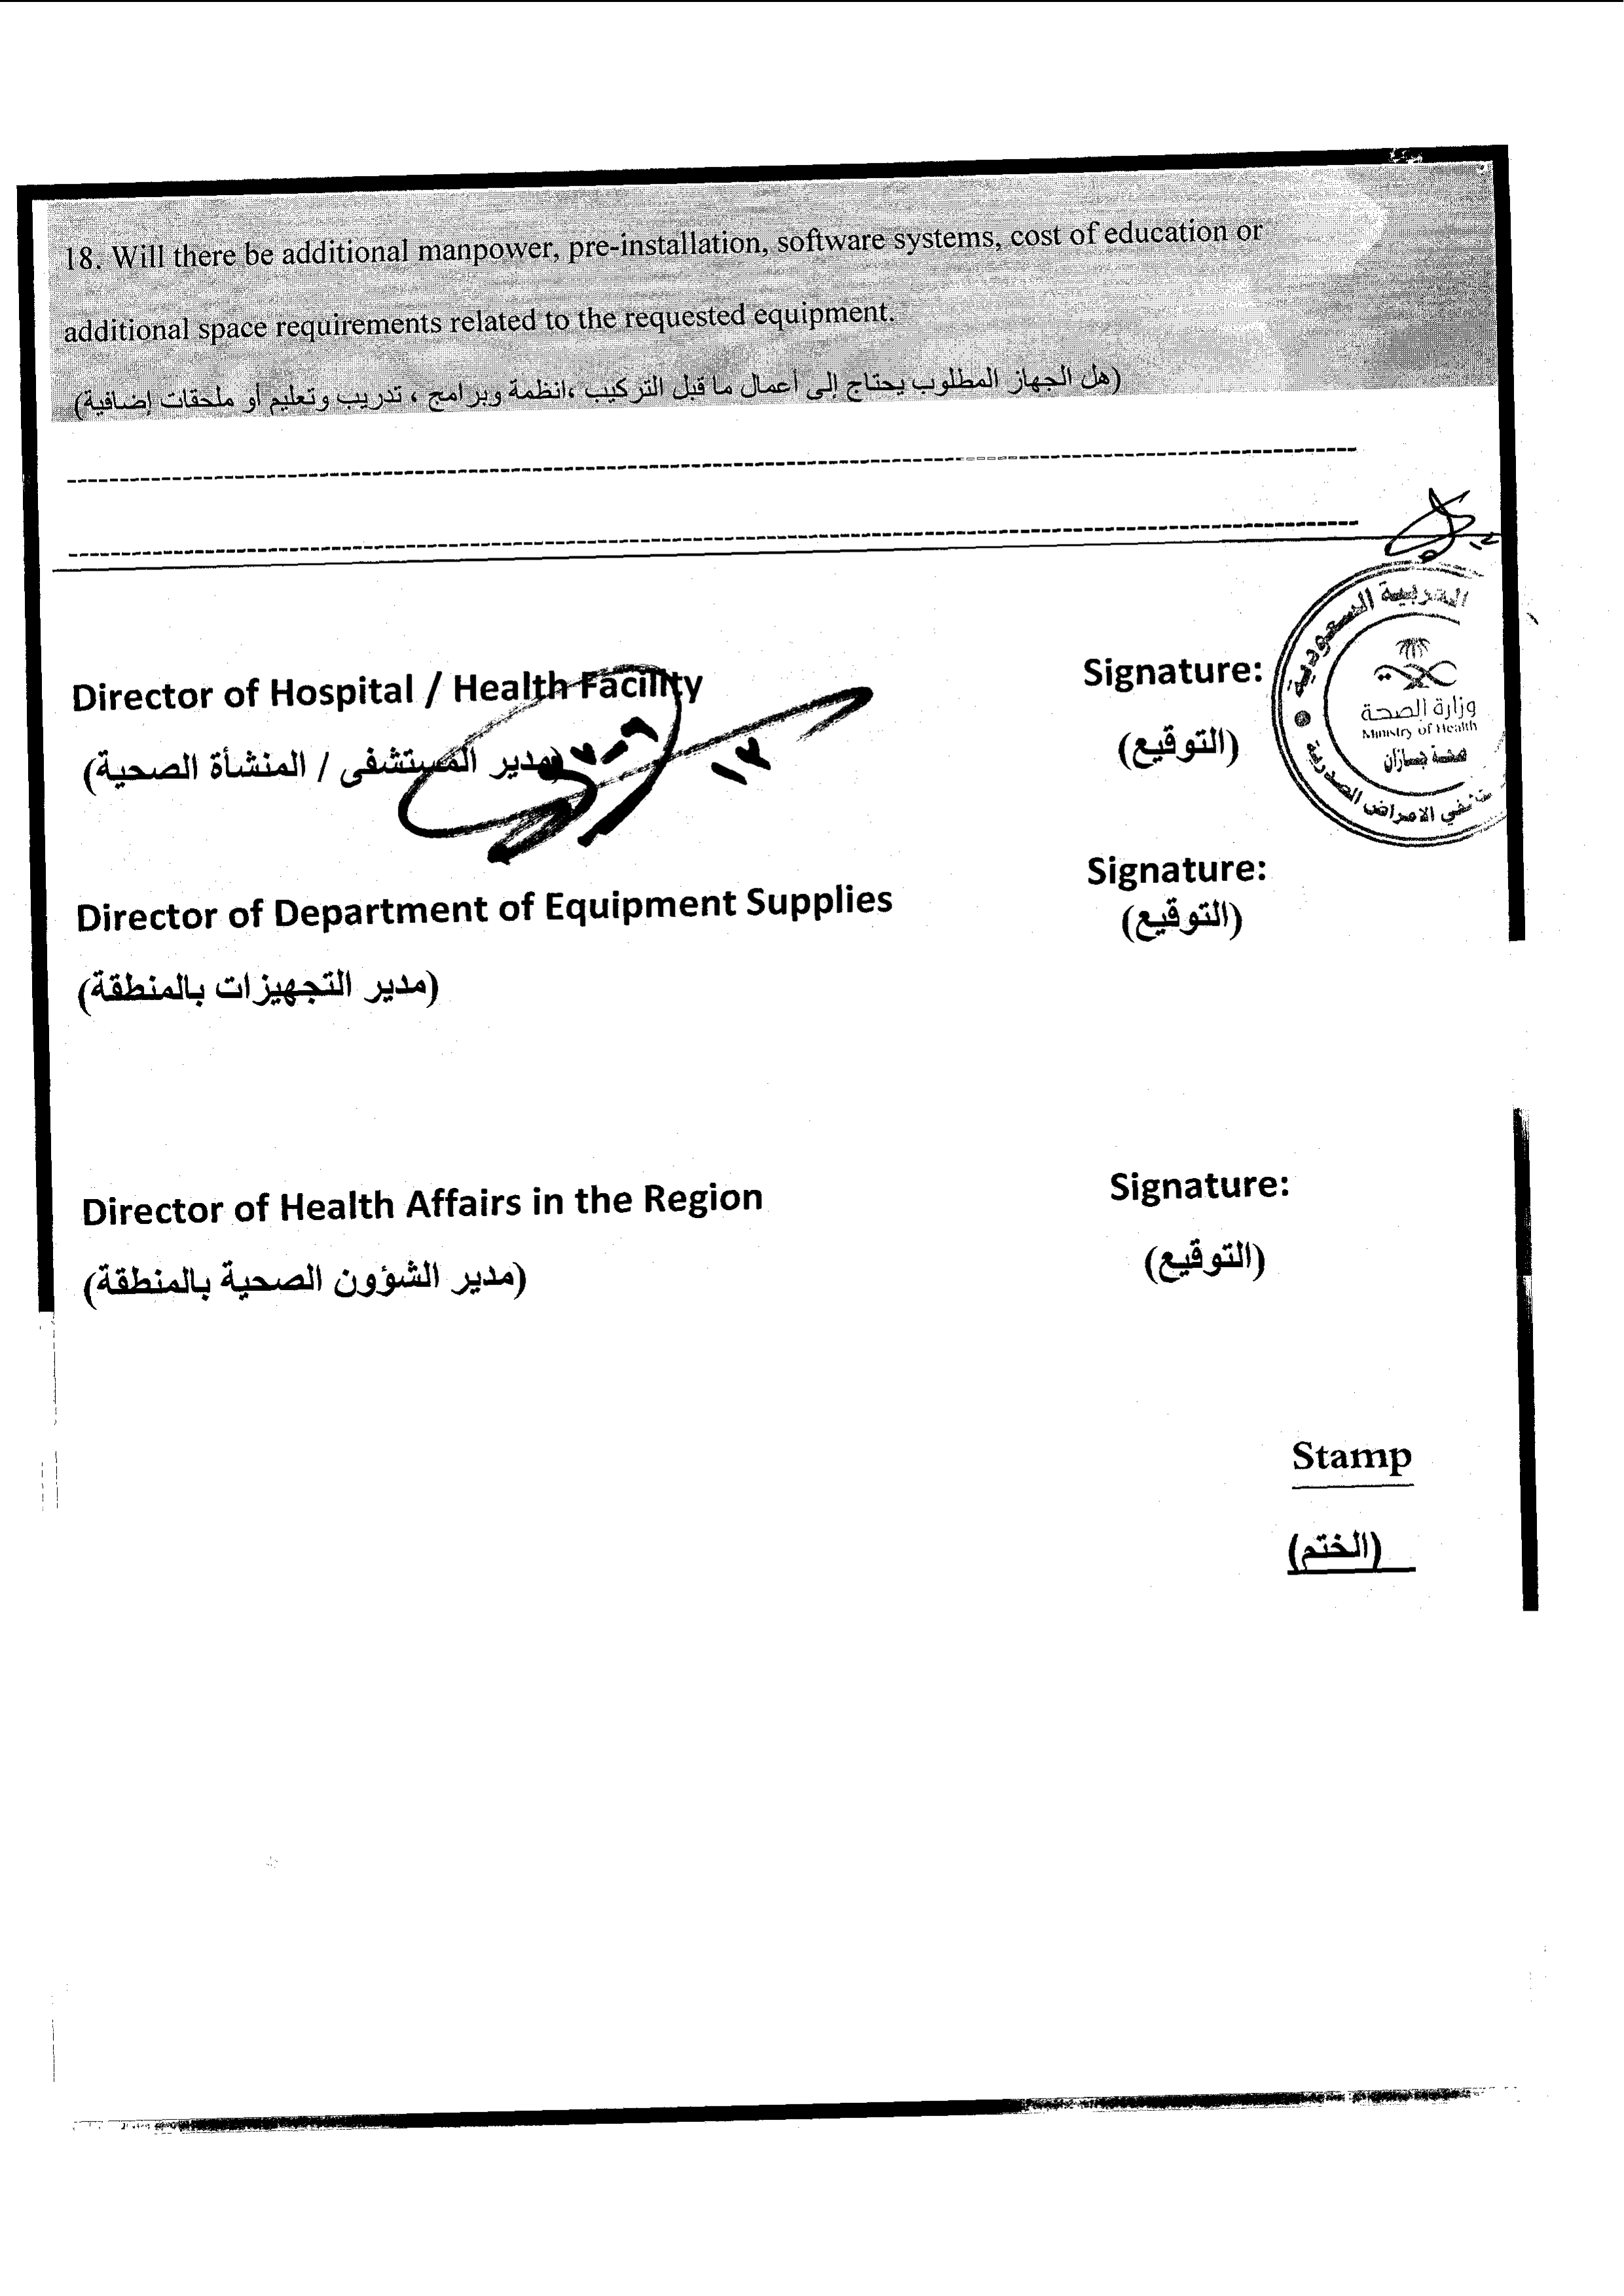 18. Will there be additional manpower, pre-installation, software systems, cost of education or
additional space requirements related to the requested equipment.
(هل الجهاز المطلوب يحتاج إلى أعمال ما قبل التركيب ،انظمة وبرامج ، تدريب وتعليم أو ملحقات إضافية)
Director of Hospital / Health Facility
Signature:
(مدير المستشفى / المنشأة الصحية)
(التوقيع)
العربية السعودية
وزارة الصحة
Ministry of Health
الامراض الصدرية
Director of Department of Equipment Supplies
Signature:
(التوقيع)
(مدير التجهيزات بالمنطقة)
Director of Health Affairs in the Region
Signature:
(مدير الشؤون الصحية بالمنطقة)
(التوقيع)
Stamp
(الختم)